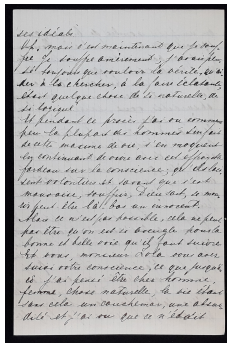 ses idéals.
Oh, mais c'est maintenant que je souf-
fre je souffre amèrement; j'avais pen-
sé toujours que vouloir la vérité, 
der à la chercher, à la faire éclatante,
était quelque chose de si naturelle, de
si logique!
Et pendant ce procès j'ai vu comme
peu la plupart des hommes se
de cette maxime de vie, s'en moquent
en continuant de vivre avec cet
fardeau sur la conscience, et di-
sent volontiers et
mauvaise, soupçon, 
peut être là-bas un innocent.
Mais ce n'est pas possible, cela ne peut
pas être qu'on est si aveugle pour la
bonne et belle voie qu'il faut suivre
Et vous, monsieur Zola vous avez
suivi votre conscience, ce que jusqu'i-
ci j'ai pensé être chez homme,
femme, chose naturelle, la vie étant
sans cela un cauchemar, une absur-
dité et j'ai vu que ce n'était